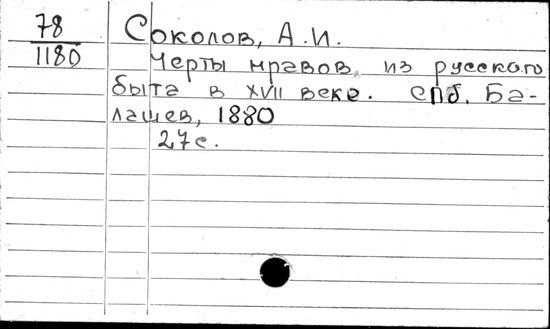 78
1180
Соколов, А.И.
Черты нравов из русского
быта в XVII веке. СПб, Ба-
лашев, 1880
27 с.